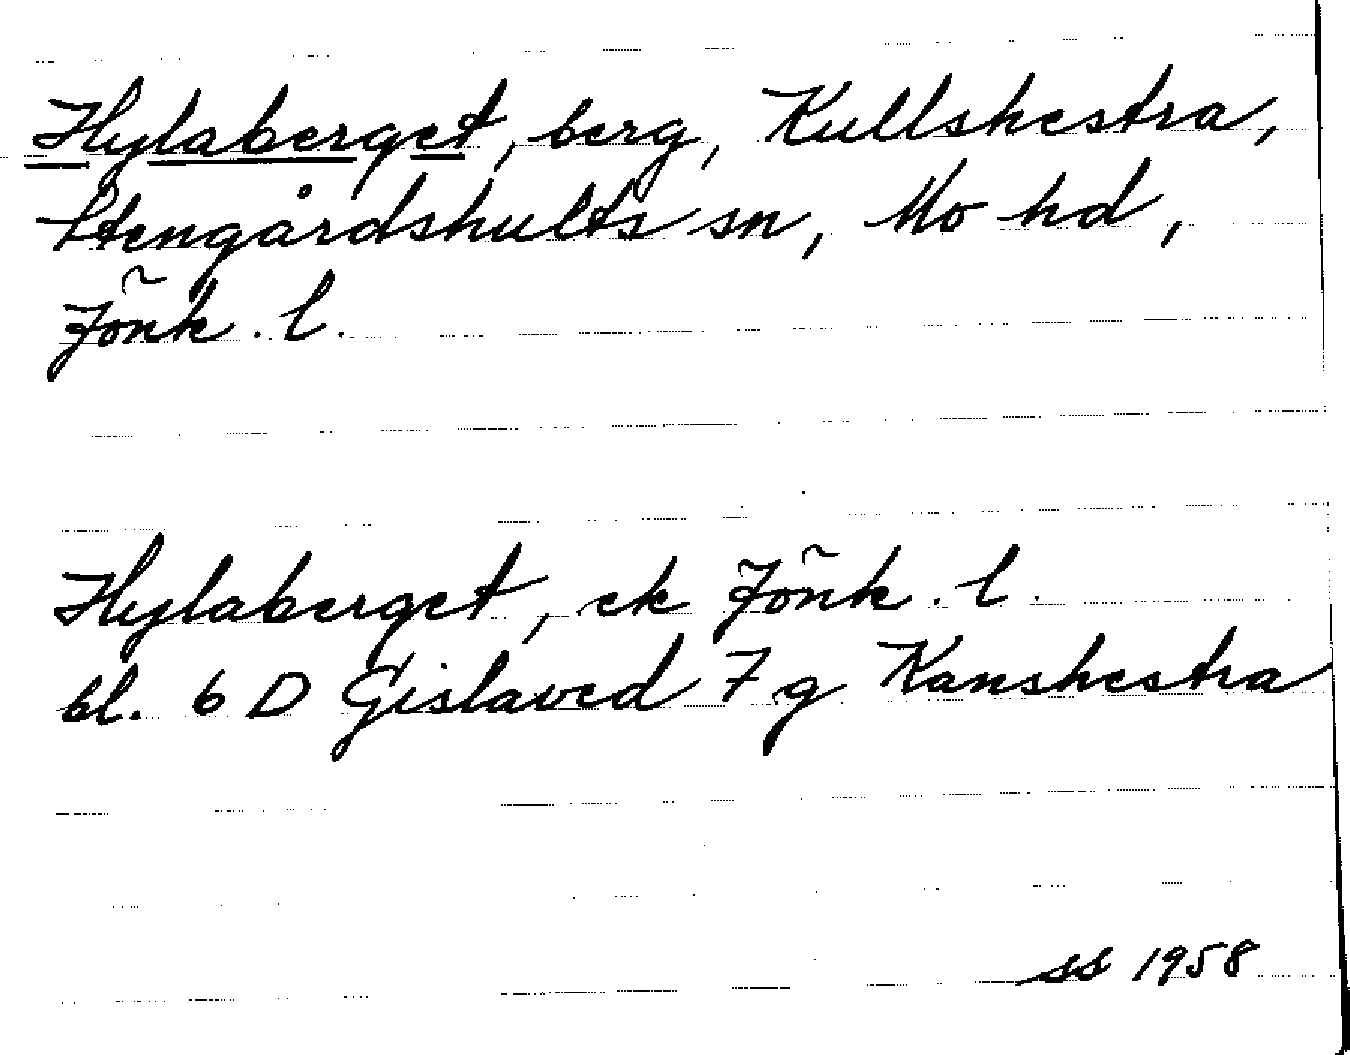 Hylaberget, berg, Kullshestra,
Stengårdshults sn, Mo hd,
Jönk. l.
Hylaberget, ek Jönk. l.
bl. 6 D Gislaved 7 g Kanshestra
SS 1958